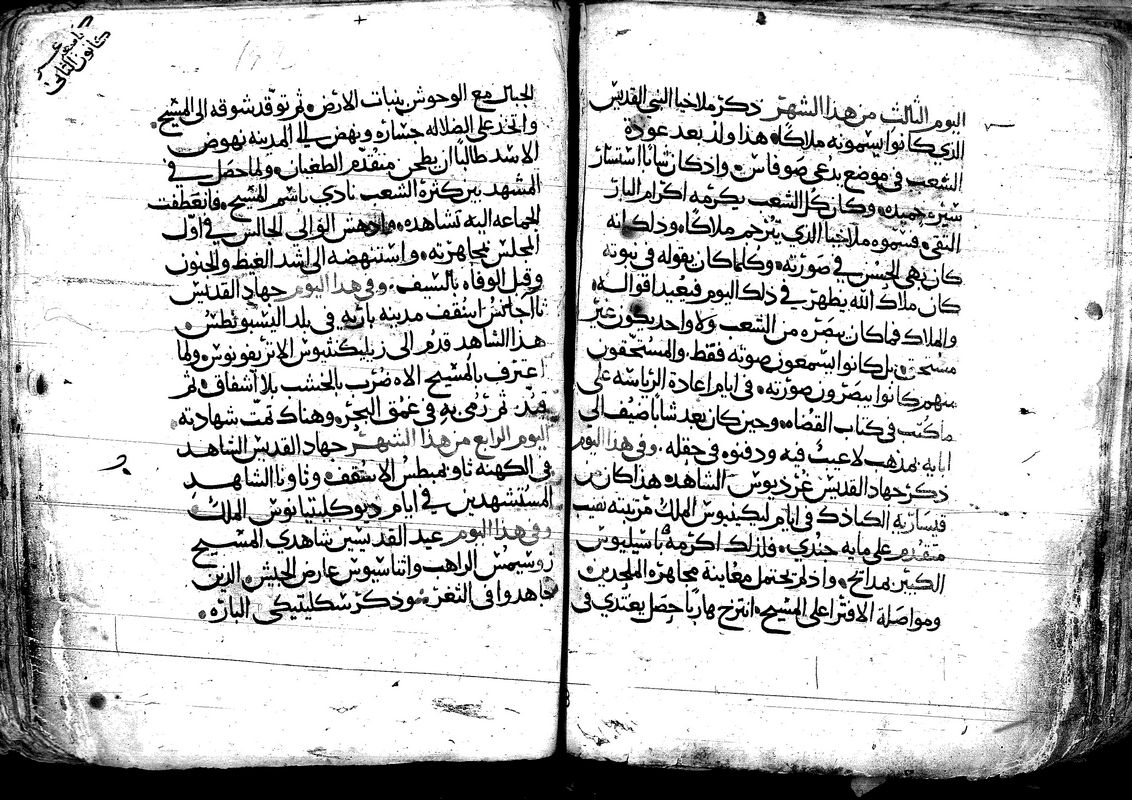 اليوم الثالث من هذا الشهر ذكر ملاخيا النبي القديس
الذي كانوا يسمونه ملاكا هذا ولد بعد عودة
الشعب في موضع يدعى صوفاس واذ كان شابا استسار
سيره حميده وكان كل الشعب يكرمه اكرام البار
التقي فسموه ملاخيا الذي يترجم ملاكا وذلك انه
كان بهي الحسن في صورته وكلما كان يقوله في نبوته
كان ملاك الله يظهر في ذلك اليوم فيعيد اقواله
والملاك فما كان يبصره من الشعب ولا واحد يكون غير
مستحق بل كانوا يسمعون صوته فقط والمستحقون
منهم كانوا يبصرون صورته في ايام اعادة الرياسه على
ما كتب في كتاب القضاه وحين كان بعد شابا ضيف الى
ابايه بمذهب لا عيب فيه ودفنوه في حقله وفي هذا اليوم
ذكر جهاد القديس غرديوس الشاهد هذا كان من
قيساريه الكبادك في ايام ليكينيوس الملك مرتبته نقيب
متقدم على مايه جندي فلذلك اكرمه باسيليوس
الكبير بمدائح واذ لم يحتمل معاينة مجاهره الملحدين
ومواصلة الافترا على المسيح انتزح هاربا حصل يغتدي في
كانون الثاني
الجبال مع الوحوش بنبات الارض ثم توقد شوقه الى المسيح
واتخذ على الضلاله جساره ونهض الى المدينه نهوض
الاسد طالبا ان يطحن متقدم الطغيان ولما حصل في
المشهد بين كثرة الشعب نادي باسم المسيح فانعطفت
الجماعه اليه تشاهده وادهش الوالى الجالس في اول
المجلس بمجاهرته واستنهضه الى اشد الغيظ والجنون
وقبل الوفاه بالسيف وفي هذا اليوم جهاد القديس
ثاآجانس اسقف مدينه باريه في بلد اليسبونطس
هذا الشاهد قدم الى زيليكنثيوس الاتريفونوس ولما
اعترف بالمسيح الاه ضرب بالخشب بلا اشفاق ثم
قيد ثم رمي به في عمق البحر وهناك تمت شهادته
اليوم الرابع من هذا الشهر جهاد القديس الشاهد
في الكهنه ثاوبمبطس الاسقف وثاونا الشاهد
المستشهدين في ايام ديوكليتيانوس الملك
وفي هذا اليوم عيد القديسين شاهدي المسيح
زوسيمس الراهب واثناسيوس عارض الحبش الذين
جاهدوا في الثغر وذكر سنكليتيكي الباره